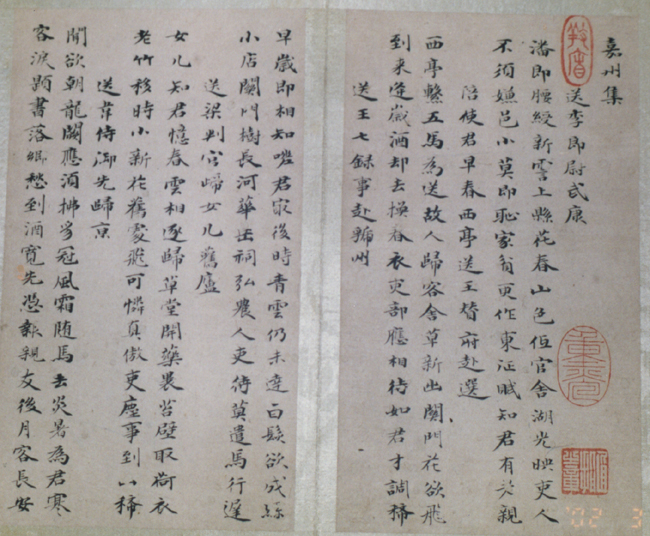 嘉州集
送李郎尉武康
潘郎腰綬新霅上縣花春山色低官舍湖光映吏人
不須嫌邑小莫即恥家貧更作東征賦知君有老親
陪使君早春西亭送王贊府赴選
西亭繫五馬為送故人歸客舍草新出關門花欲飛
到来逢歲酒却去換春衣吏部應相待如君才調稀
送王七錄事赴虢州
早歲即相知嗟君最後時青雲仍未達白髮欲成絲
小店關門樹長河華岳祠弘農人吏待莫遣馬行遲
送梁判官歸女几舊廬
女几知君憶春雲相逐歸草堂開藥裹苔壁取荷衣
老竹移時小新花舊處飛可憐真傲吏塵事到山稀
送韋侍御先歸京
聞欲朝龍闕應須拂豸冠風霜随馬去炎暑為君寒
客淚題書落鄉愁到酒寬先憑報親友後月客長安
'02 3